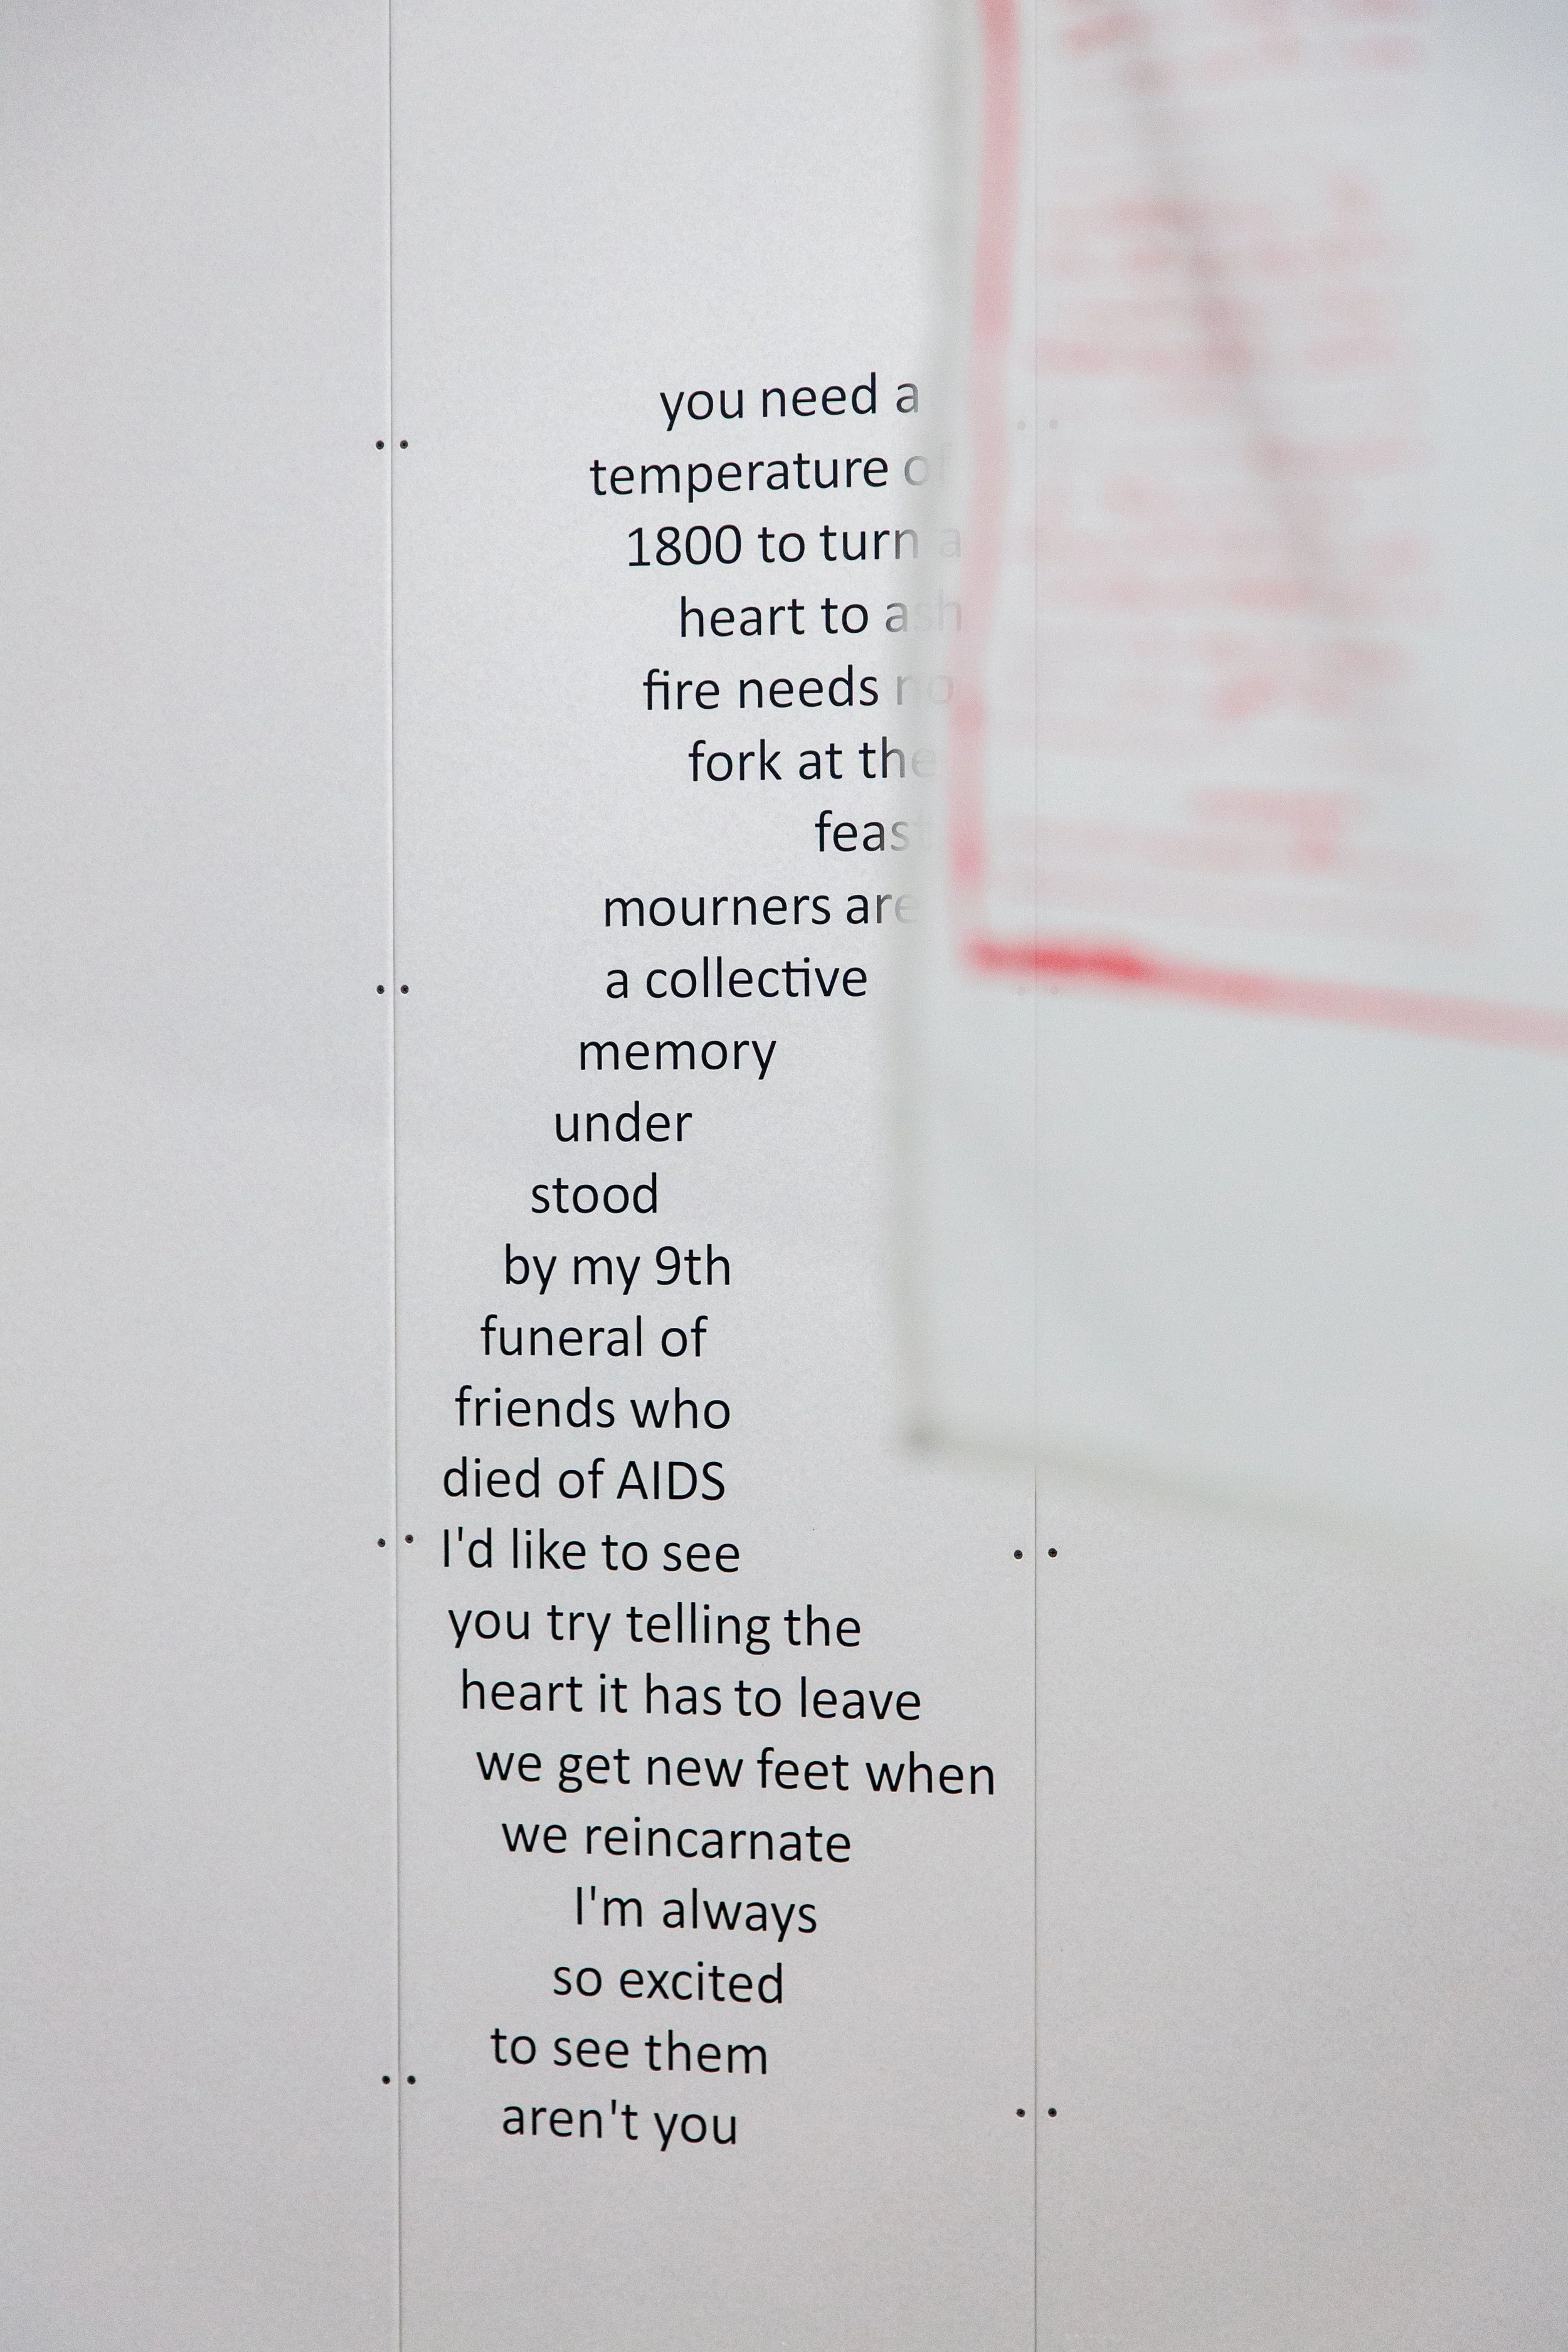 you need a
temperature of
1800 to turn a
heart to ash
fire needs no
fork at the
feast
mourners are
a collective
memory
under
stood
by my 9th
funeral of
friends who
died of AIDS
I'd like to see
you try telling the
heart it has to leave
we get new feet when
we reincarnate
I'm always
so excited
to see them
aren't you